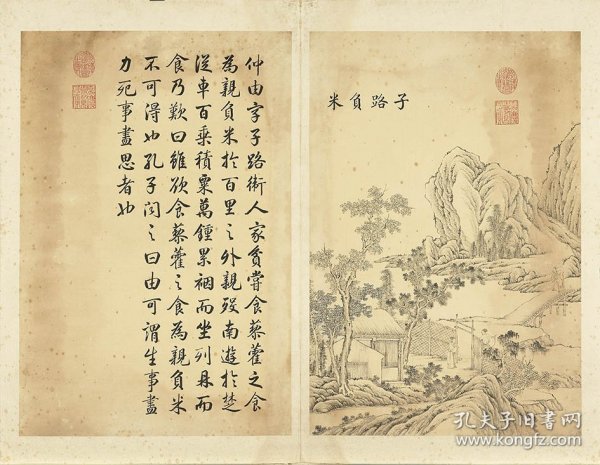 子路負米
仲由字子路衛人家貧嘗食藜藿之食
為親負米於百里之外親歿南遊於楚
從車百乘積粟萬鍾累裀而坐列鼎而
食乃歎曰雖欲食藜藿之食為親負米
不可得也孔子聞之曰由可謂生事盡
力死事盡思者也
孔夫子旧书网
www.kongfz.com